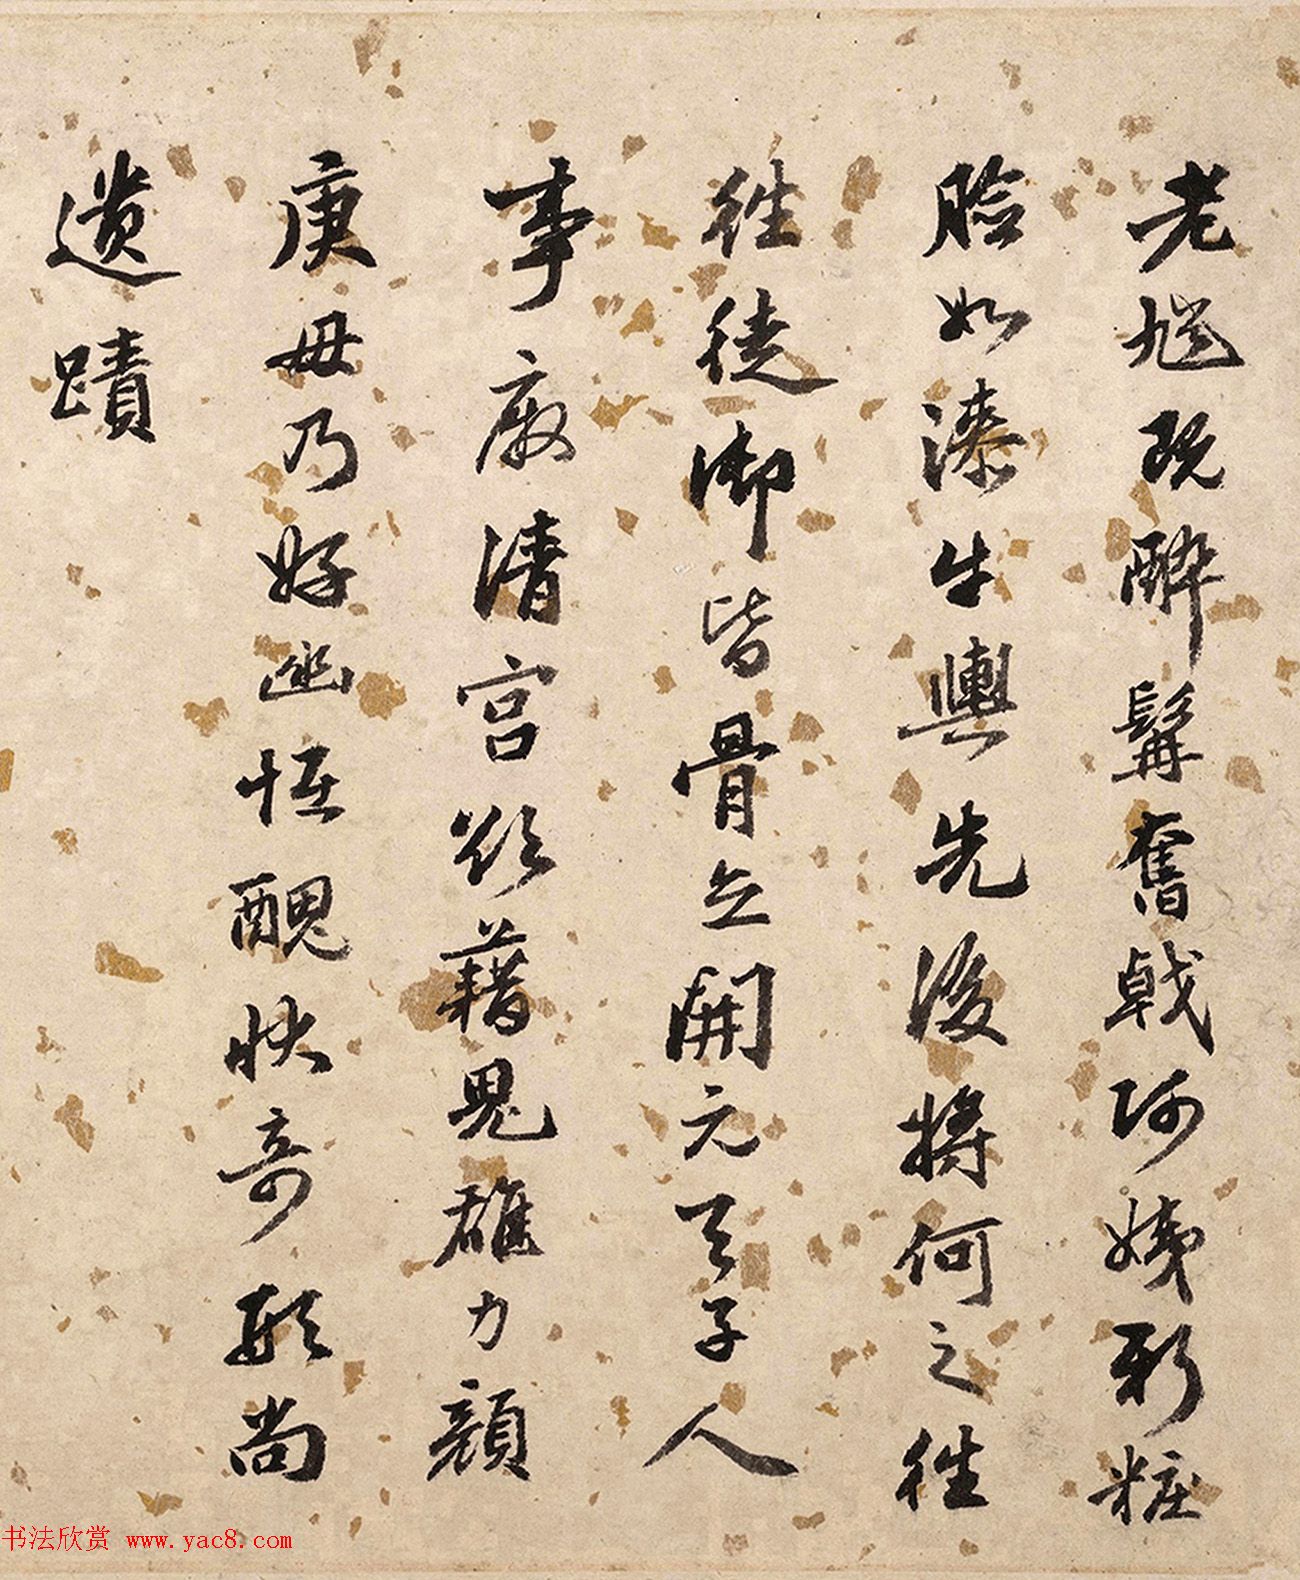 老馗既醉髯奮戟阿姨新粧
臉如漆牛輿先後將何之往
往徒御皆骨立開元天子人
事廢清宮欲藉鬼雄力顏
庚毋乃好幽恠醜狀奇形尚
遺蹟
书法欣赏 www.yac8.com